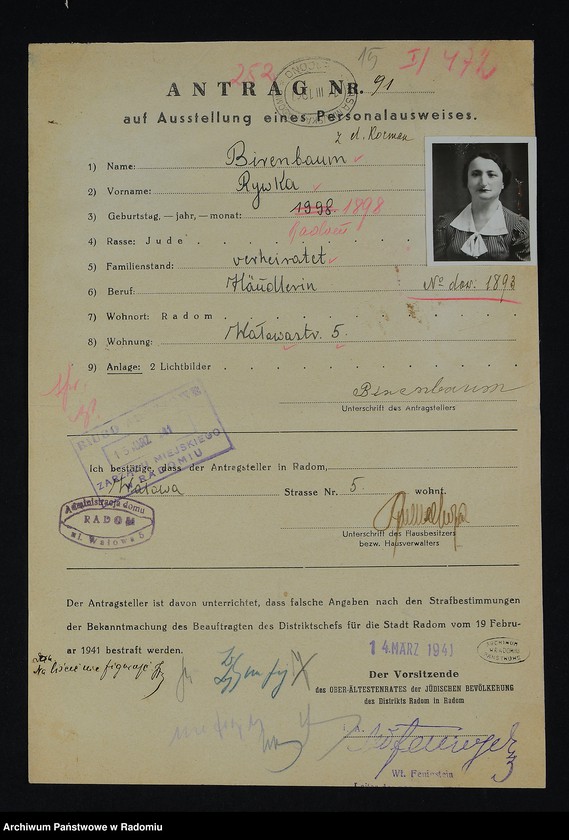 252
15
I/ 472
ANTRAG NR. 91
auf Ausstellung eines Personalausweises.
z d. Korman
1) Name: Birenbaum
2) Vorname: Rywka
3) Geburtstag, — jahr, — monat: 1998. 1898
Radom
4) Rasse: Jude
5) Familienstand: verheiratet
6) Beruf: Händlerin
No dow. 1893
7) Wohnort: Radom
8) Wohnung: Wałowastr. 5.
9) Anlage: 2 Lichtbilder
Birenbaum
Unterschrift des Antragstellers
15. MRZ. 1941
ZARZĄDU MIEJSKIEGO
w RADOMIU
Ich bestätige, dass der Antragsteller in Radom,
Wałowa Strasse Nr. 5. wohnt.
Administracja domu
RADOM
ul. Wałowa 5
Unterschrift des Hausbesitzers
bezw. Hausverwalters
Der Antragsteller ist davon unterrichtet, dass falsche Angaben nach den Strafbestimmungen
der Bekanntmachung des Beauftragten des Distriktschefs für die Stadt Radom vom 19 Febru-
ar 1941 bestraft werden.
14. MÄRZ 1941
ARCHIWUM
RADOMIU
PAŃSTWOWE
Na liście nie figuruje
Der Vorsitzende
des OBER-ÄLTESTENRATES der JÜDISCHEN BEVÖLKERUNG
des Distrikts Radom in Radom
nie figuruje
Wł. Fenigstein
Archiwum Państwowe w Radomiu